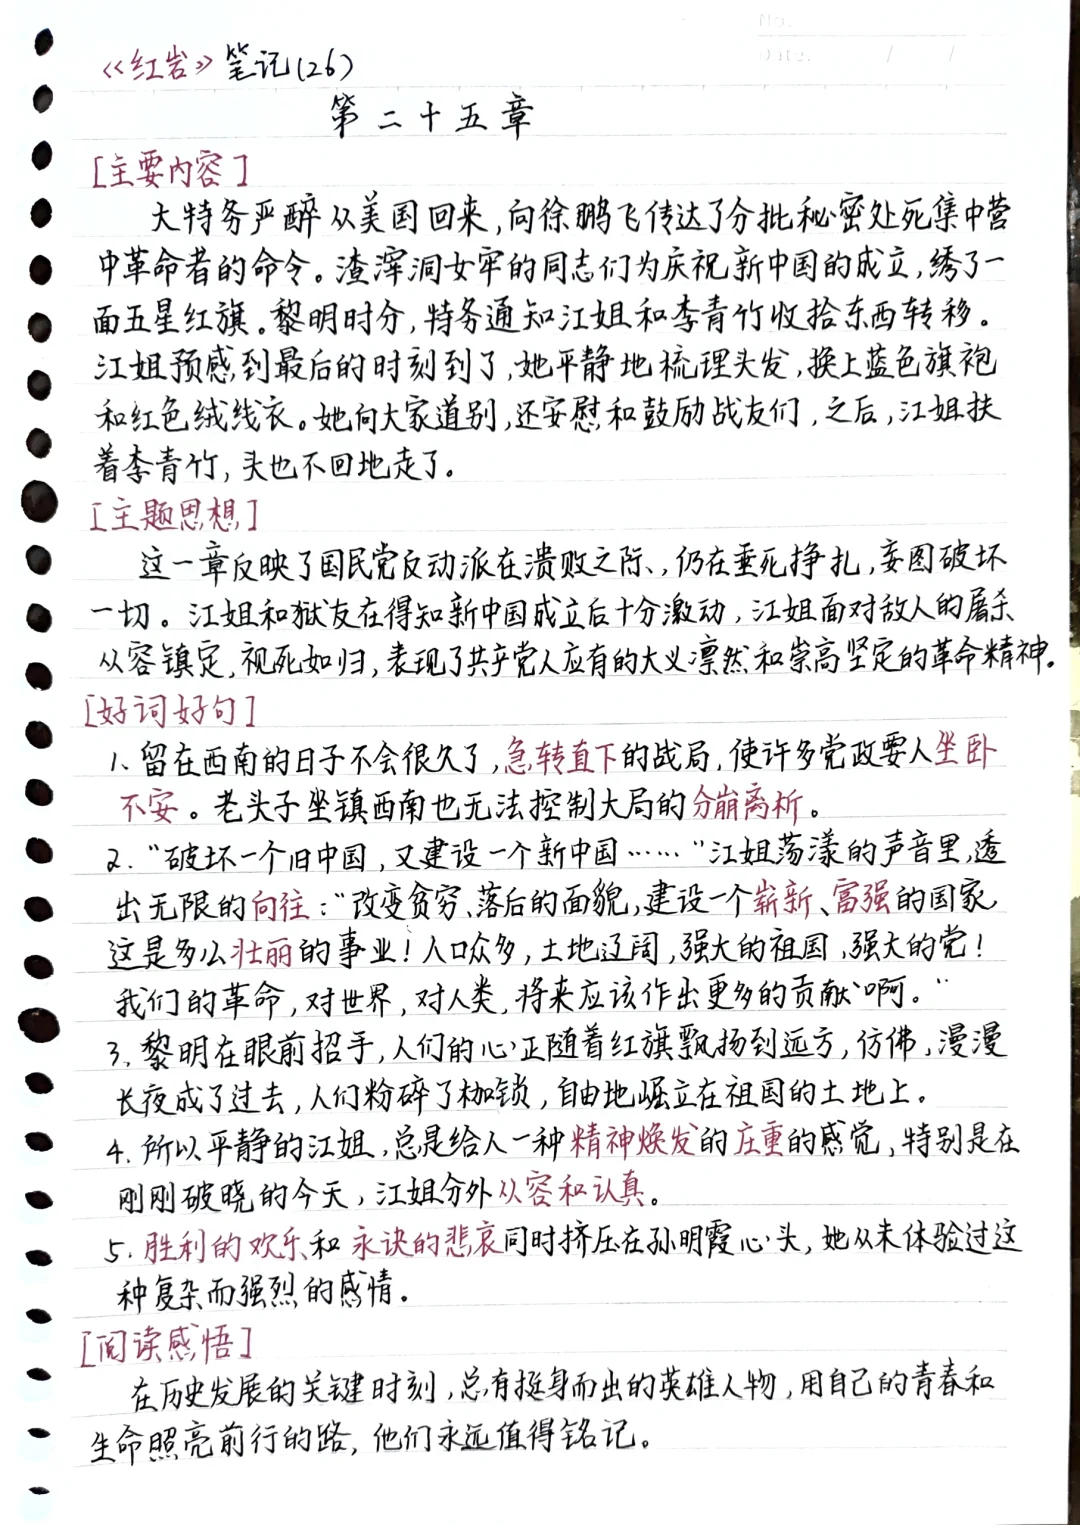 《红岩》笔记(26)
第二十五章
[主要内容]
大特务严醉从美国回来,向徐鹏飞传达了分批秘密处死集中营
中革命者的命令。渣滓洞女牢的同志们为庆祝新中国的成立,绣了一
面五星红旗。黎明时分,特务通知江姐和李青竹收拾东西转移。
江姐预感到最后的时刻到了,她平静地梳理头发,换上蓝色旗袍
和红色绒线衣。她向大家道别,还安慰和鼓励战友们,之后,江姐扶
着李青竹,头也不回地走了。
[主题思想]
这一章反映了国民党反动派在溃败之际,仍在垂死挣扎,妄图破坏
一切。江姐和狱友在得知新中国成立后十分激动,江姐面对敌人的屠杀
从容镇定,视死如归,表现了共产党人应有的大义凛然和崇高坚定的革命精神。
[好词好句]
1、留在西南的日子不会很久了,急转直下的战局,使许多党政要人坐卧
不安。老头子坐镇西南也无法控制大局的分崩离析。
2."破坏一个旧中国,又建设一个新中国……"江姐荡漾的声音里,透
出无限的向往:"改变贫穷、落后的面貌,建设一个崭新、富强的国家,
这是多么壮丽的事业!人口众多,土地辽阔,强大的祖国,强大的党!
我们的革命,对世界,对人类,将来应该作出更多的贡献啊。"
3、黎明在眼前招手,人们的心正随着红旗飘扬到远方,仿佛,漫漫
长夜成了过去,人们粉碎了枷锁,自由地崛立在祖国的土地上。
4.所以平静的江姐,总是给人一种精神焕发的庄重的感觉,特别是在
刚刚破晓的今天,江姐分外从容和认真。
5.胜利的欢乐和永诀的悲哀同时挤压在孙明霞心头,她从未体验过这
种复杂而强烈的感情。
[阅读感悟]
在历史发展的关键时刻,总有挺身而出的英雄人物,用自己的青春和
生命照亮前行的路,他们永远值得铭记。